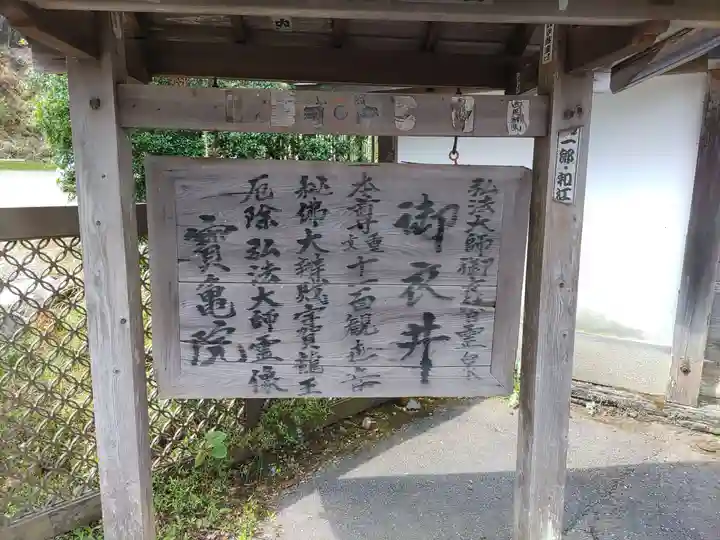 弘法大師御衣替霊
御衣井
本尊重文十一面観世音
秘佛大辨財宇賀龍王
厄除弘法大師霊像
寳亀院
一郎・和江